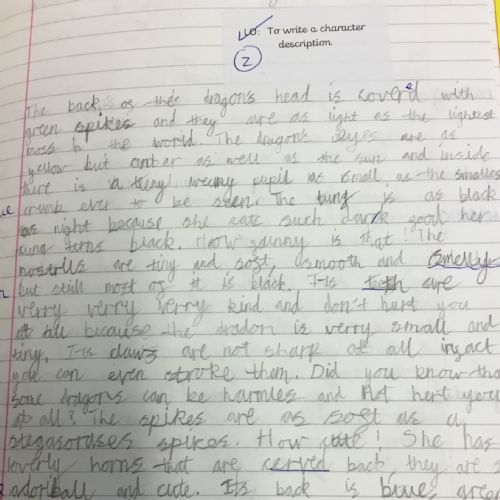 LO: To write a character
description
2
The back of the dragon's head is coverd with
green spikes and they are as light as the lightest
moss in the world. The dragon's eyes are as
yellow but amber as well as the sun and inside
there is a tiny weeny pupil as small as the smalles
crumb ever to be seen. The tung is as black
as night because she eats such dark food her
tung turns black. How funny is that! The
nostrills are tiny and soft, smooth and smelly
but still most of it is black. T-is teeth are
verry verry verry kind and don't hurt you
at all because the dradon is verry small and
tiny. T-is claws are not sharp at all infact
you can even stroke tham. Did you know tha
some dragons can be harmles and not hert you
at all? The spikes are as soft as a
stegasorases spikes. How cute! She has
loverly horns that are cerved back, they are s
adorball and cute. Its back is blue green